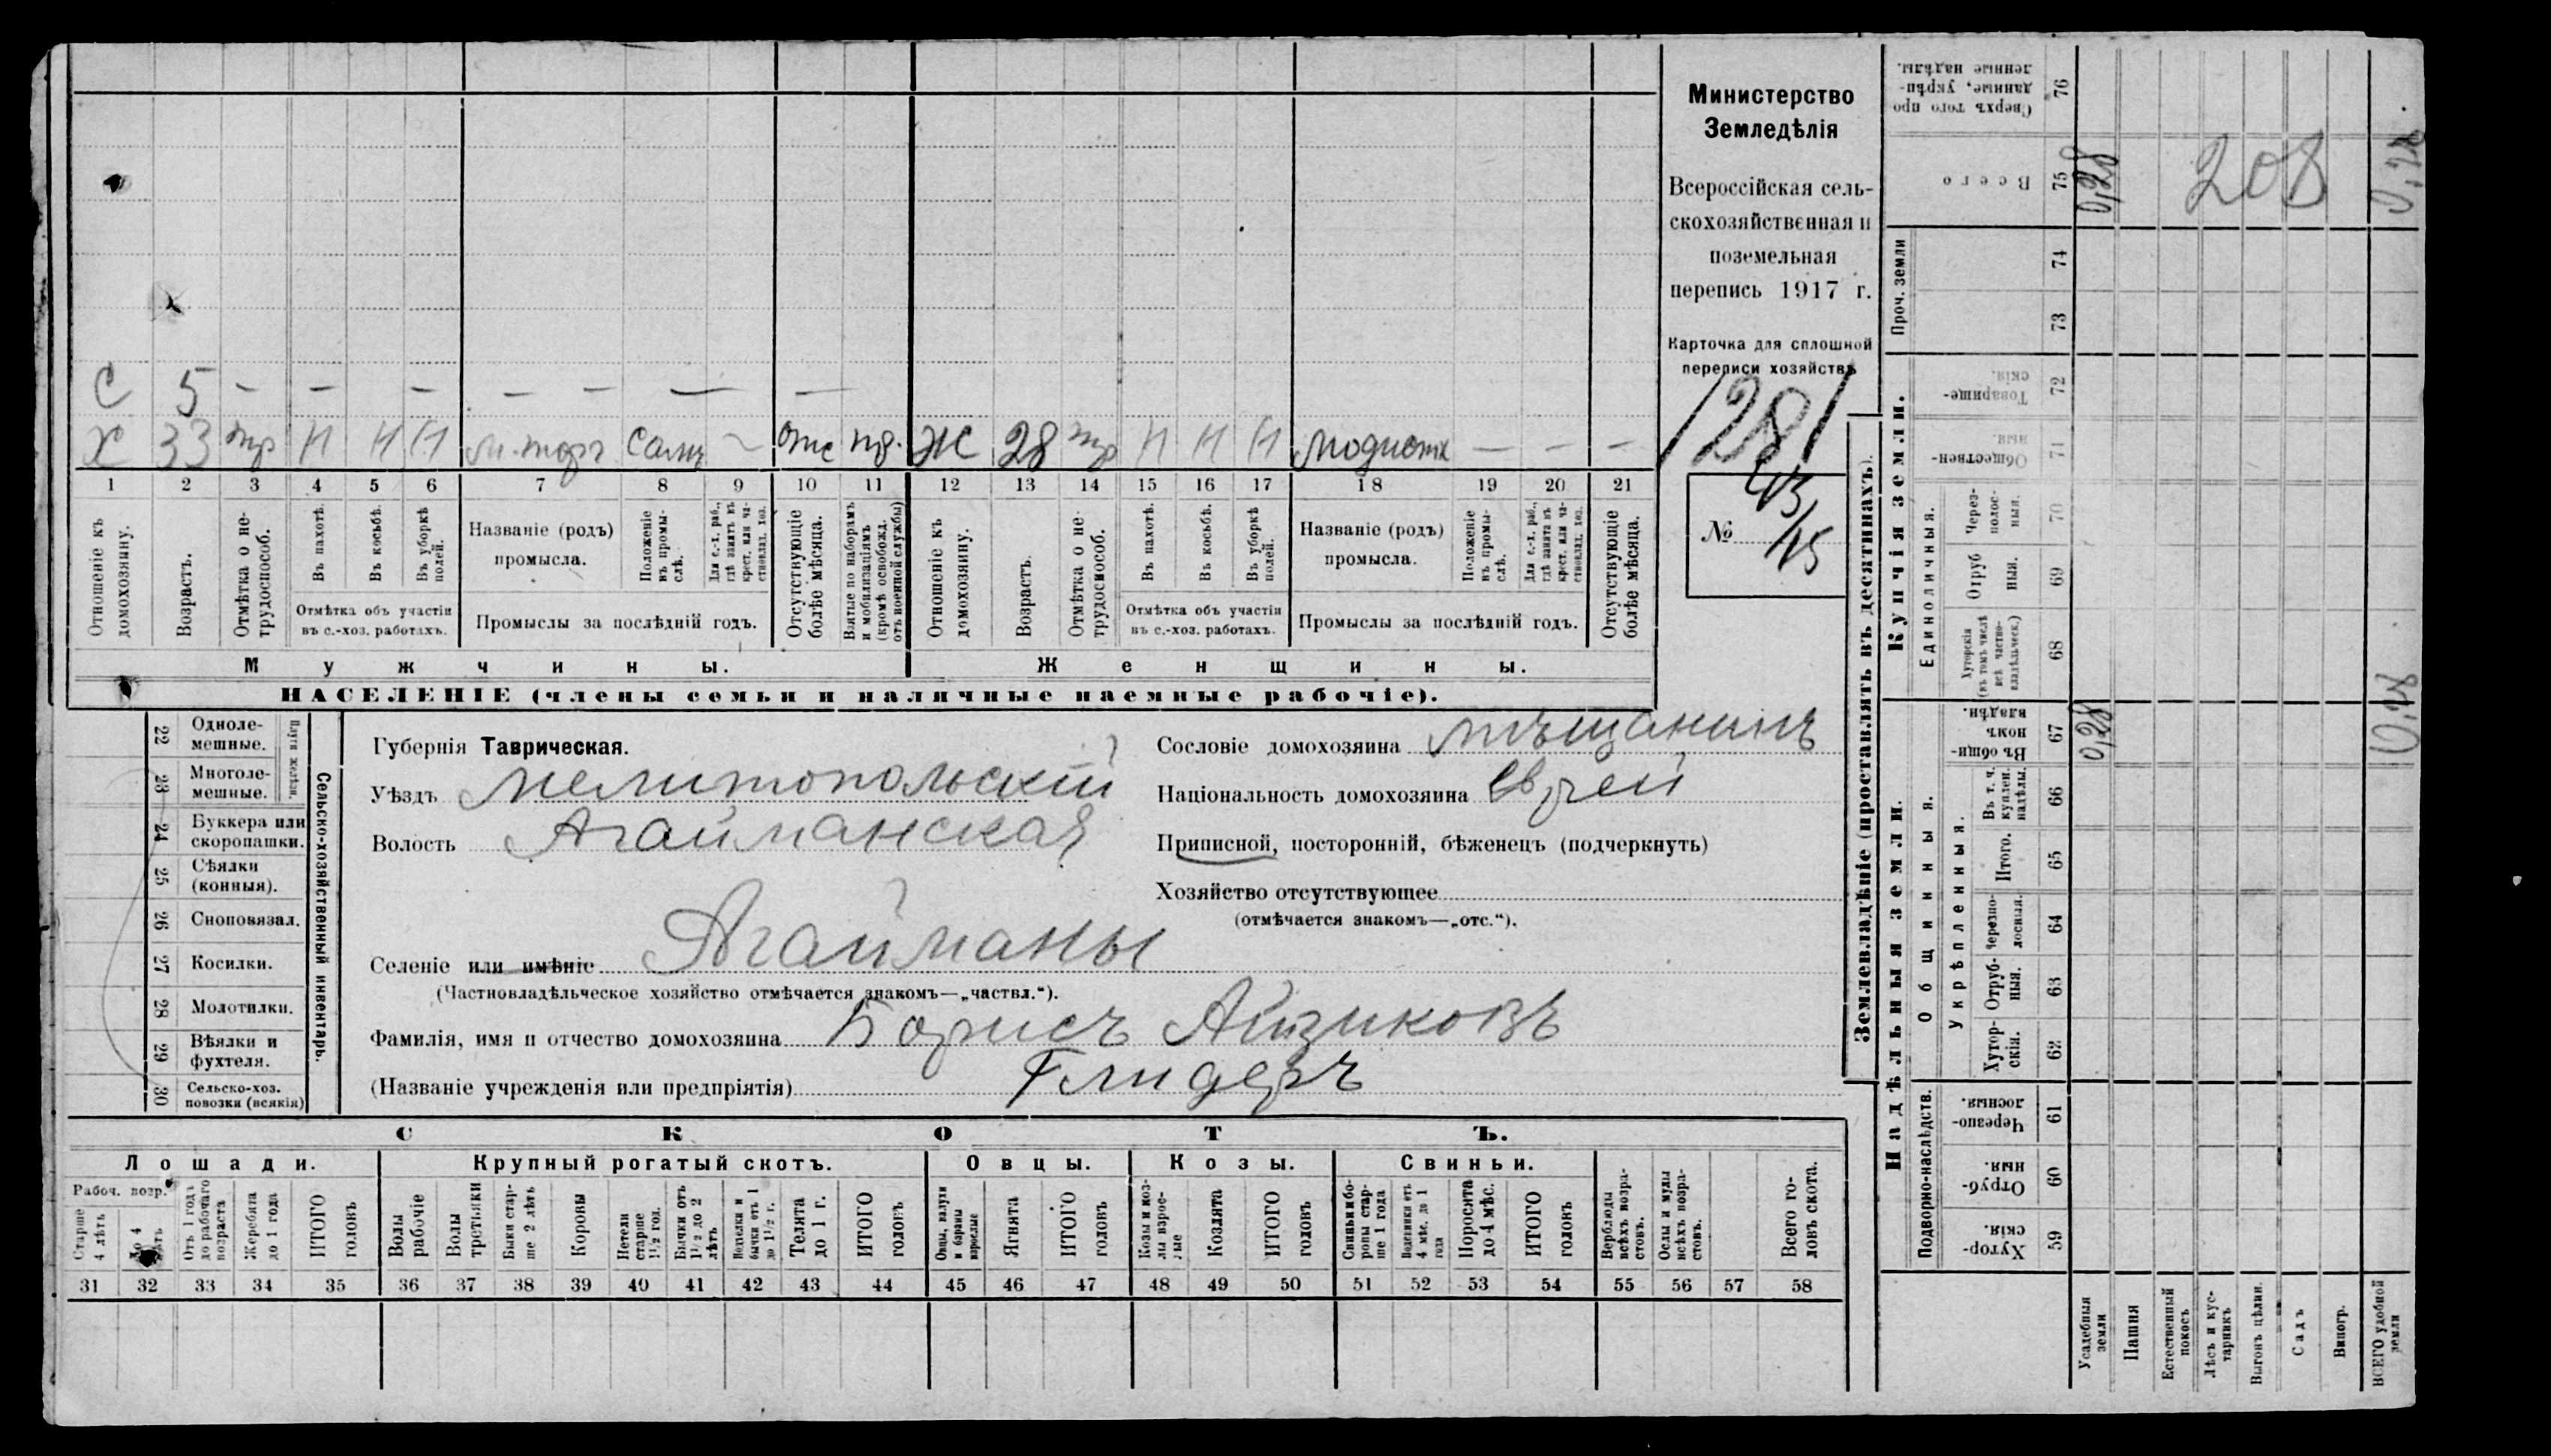 Министерство
Земледѣлія
Всероссійская сель-
скохозяйственная и
поземельная
перепись 1917 г.
Карточка для сплошной
переписи хозяйствъ
1281
№ 43/15
С 5 – – – – – — —
Х 33 тр Н Н Н м. торг. сам. – отс пр. Ж 28 тр Н Н Н модистк – – –
1 2 3 4 5 6 7 8 9 10 11 12 13 14 15 16 17 18 19 20 21
Отношеніе къ домохозяину.
Возрастъ.
Отмѣтка о не-трудоспособ.
Въ пахотѣ.
Въ косьбѣ.
Въ уборкѣ полей.
Отмѣтка объ участіи въ с.-хоз. работахъ.
Названіе (родъ) промысла.
Положеніе въ промы-слѣ.
Для с.-х. раб., гдѣ занятъ въ крест. или ча-стновлад. хоз.
Промыслы за послѣдній годъ.
Отсутствующіе болѣе мѣсяца.
Взятые по наборамъ и мобилизаціямъ (кромѣ освобожд. отъ военной службы)
Отношеніе къ домохозяину.
Возрастъ.
Отмѣтка о не-трудоспособ.
Въ пахотѣ.
Въ косьбѣ.
Въ уборкѣ полей.
Отмѣтка объ участіи въ с.-хоз. работахъ.
Названіе (родъ) промысла.
Положеніе въ промы-слѣ.
Для с.-х. раб., гдѣ занята въ крест. или ча-стновлад. хоз.
Промыслы за послѣдній годъ.
Отсутствующіе болѣе мѣсяца.
Мужчины. Женщины.
НАСЕЛЕНІЕ (члены семьи и наличные наемные рабочіе).
Сельско-хозяйственный инвентарь.
Плуги желѣзн.
22 Одноле-мешные.
23 Многоле-мешные.
24 Буккера или скоропашки.
25 Сѣялки (конныя).
26 Сноповязал.
27 Косилки.
28 Молотилки.
29 Вѣялки и фухтеля.
30 Сельско-хоз. повозки (всякія)
Губернія Таврическая.
Уѣздъ Мелитопольскій
Волость Агайманская
Селеніе или имѣніе Агайманы
(Частновладѣльческое хозяйство отмѣчается знакомъ—„частвл.“).
Фамилія, имя и отчество домохозяина Борисъ Айзиковъ
(Названіе учрежденія или предпріятія) Глидеръ
Сословіе домохозяина мѣщанинъ
Національность домохозяина еврей
Приписной, посторонній, бѣженецъ (подчеркнуть)
Хозяйство отсутствующее
(отмѣчается знакомъ—„отс.“).
СКОТЪ.
Лошади. Крупный рогатый скотъ. Овцы. Козы. Свиньи.
Рабоч. возр.
Старше 4 лѣтъ
До 4 лѣтъ
Отъ 1 года до рабочаго возраста
Жеребята до 1 года
ИТОГО головъ
Волы рабочіе
Волы третьяки
Быки стар-ше 2 лѣтъ
Коровы
Нетели старше 1½ год.
Бычки отъ 1½ до 2 лѣтъ
Телки и бычки отъ 1 до 1½ г.
Телята до 1 г.
ИТОГО головъ
Овцы, валухи и бараны взрослые
Ягнята
ИТОГО головъ
Козы и коз-лы взрос-лые
Козлята
ИТОГО головъ
Свиньи и бо-ровы стар-ше 1 года
Подсвинки отъ 4 мѣс. до 1 года
Поросята до 4 мѣс.
ИТОГО головъ
Верблюды всѣхъ возра-стовъ.
Ослы и мулы всѣхъ возра-стовъ.
Всего го-ловъ скота.
31 32 33 34 35 36 37 38 39 40 41 42 43 44 45 46 47 48 49 50 51 52 53 54 55 56 57 58
Землевладѣніе (проставлять въ десятинахъ).
Купчія земли.
Надѣльныя земли.
Проч. земли
Единоличныя.
Общинныя.
Укрѣпленныя.
Подворно-наслѣдств.
Сверхъ того про-данные, укрѣп-ленные надѣлы. 76
Всего 75 0,28 208 0,28
74
73
Товарище-скія. 72
Обществен-ныя. 71
Через-полос-ныя. 70
Отруб ныя. 69
Хуторскія (въ томъ числѣ всѣ частно-владѣльческ.) 68
Въ общин-номъ владѣн. 67 0,28 0,28
Въ т. ч. куплен. надѣлы. 66
Итого. 65
Черезпо-лосныя. 64
Отруб-ныя. 63
Хутор-скія. 62
Черезпо-лосныя. 61
Отруб-ныя. 60
Хутор-скія. 59
Усадебныя земли
Пашня
Естественный покосъ
Лѣсъ и кус-тарникъ
Выгонъ цѣлин.
Садъ
Виногр.
ВСЕГО удобной земли